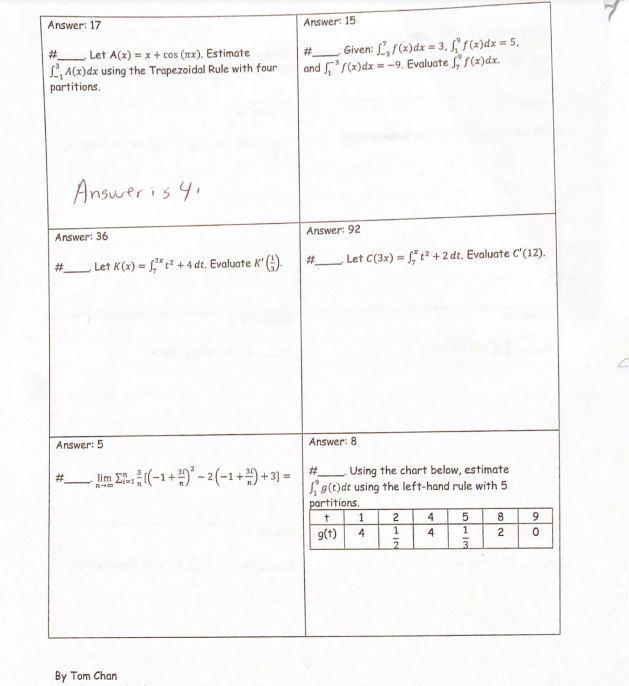 Answer: 17
#____. Let A(x) = x + cos (πx). Estimate
∫₋₁³ A(x)dx using the Trapezoidal Rule with four
partitions.
Answer is 4.
Answer: 15
#____. Given: ∫₋₃⁷ f(x)dx = 3, ∫₁⁹ f(x)dx = 5,
and ∫₁⁻³ f(x)dx = -9. Evaluate ∫₇⁹ f(x)dx.
Answer: 36
#____. Let K(x) = ∫₇³ˣ t² + 4 dt. Evaluate K'(1/3).
Answer: 92
#____. Let C(3x) = ∫₇ˣ t² + 2 dt. Evaluate C'(12).
Answer: 5
#____. lim n→∞ Σⁿᵢ₌₁ 3/n [(-1 + 3i/n)² - 2(-1 + 3i/n) + 3] =
Answer: 8
#____. Using the chart below, estimate
∫₁⁹ g(t)dt using the left-hand rule with 5
partitions.
t 1 2 4 5 8 9
g(t) 4 1/2 4 1/3 2 0
By Tom Chan